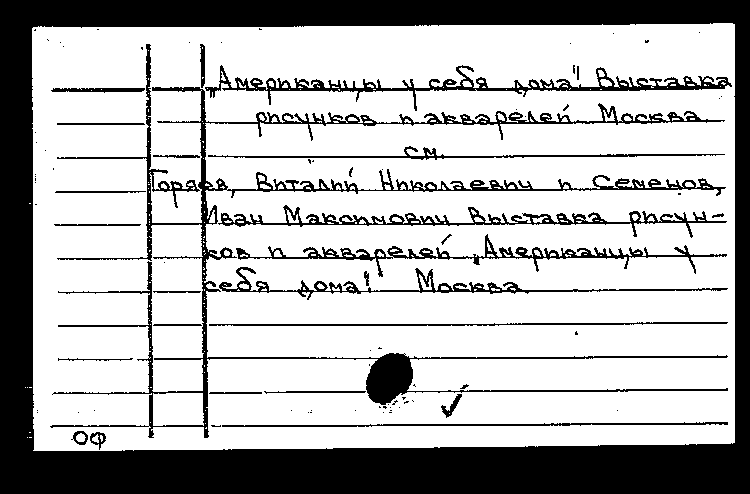 „Американцы у себя дома". Выставка
рисунков и акварелей. Москва.
см.
Горяев, Виталий Николаевич и Семенов,
Иван Максимович. Выставка рисун-
ков и акварелей „Американцы у
себя дома". Москва.
ОФ